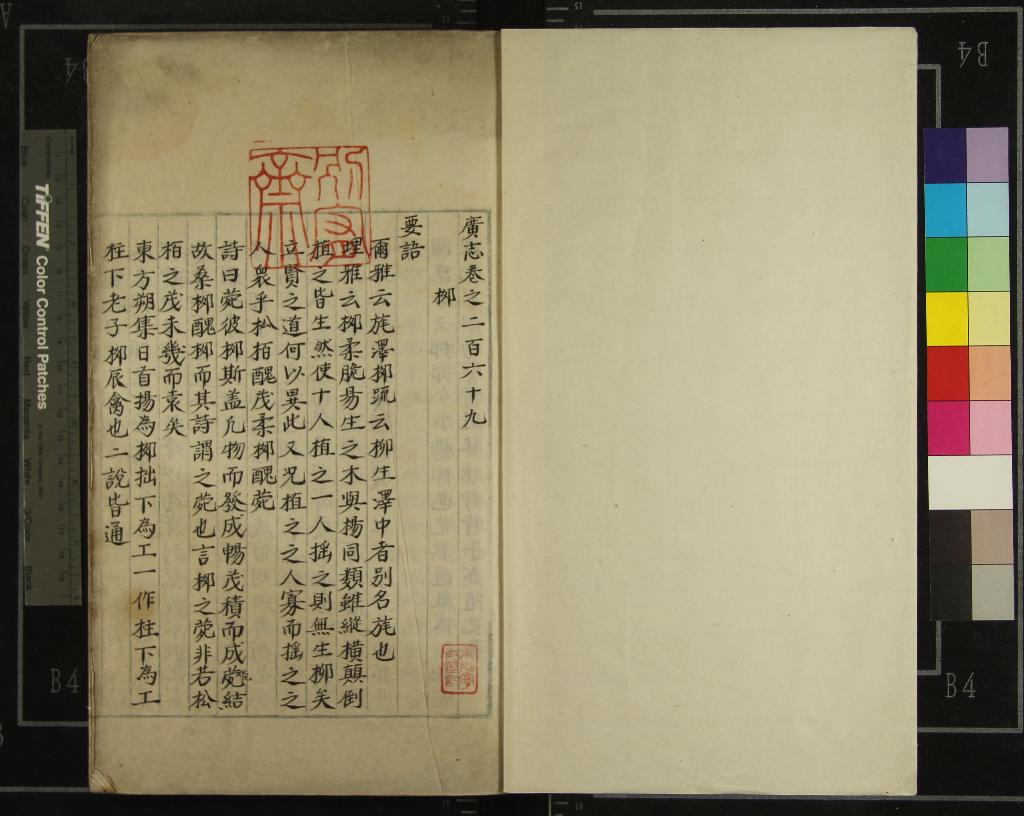 廣志卷之二百六十九
柳
要語
爾雅云旄澤柳䟽云柳生澤中者别名旄也
埋雅云柳柔脆易生之木與楊同類雖縱橫顛倒
植之皆生然使十人植之一人揺之則無生柳矣
立賢之道何以異此又况植之之人寡而揺之之
人衆乎松栢醜茂柔柳醜菀
詩曰菀彼柳斯盖凡物而發成暢茂積而成菀結
故桑柳醜柳而其詩謂之菀也言柳之菀非若松
栢之茂未幾而衰矣
東方朔集日首揚為柳拙下為工一作柱下為工
柱下老子柳辰禽也二說皆通
TIFFEN Color Control Patches
B4
B4
B4